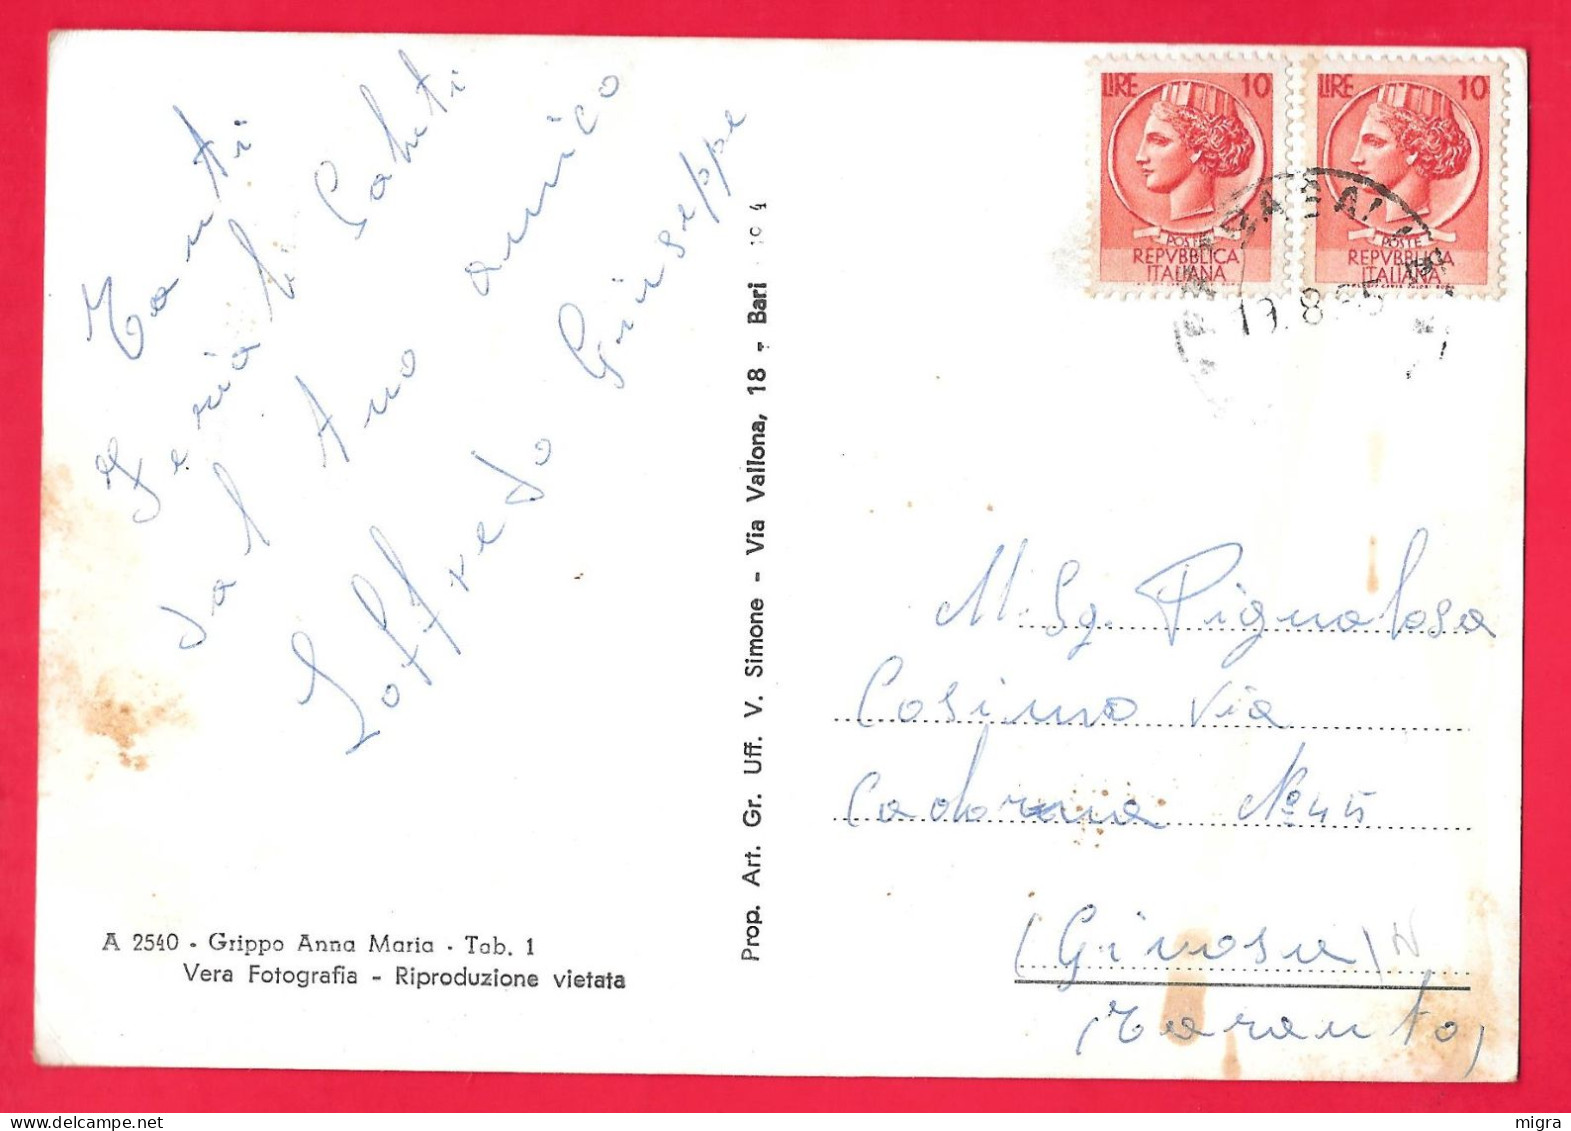 Tanti
seriali Saluti
dal tuo amico
Loffredo Giuseppe
A 2540 - Grippo Anna Maria - Tab. 1
Vera Fotografia - Riproduzione vietata
Prop. Art. Gr. Uff. V. Simone - Via Vallona, 18 - Bari
LIRE 10
POSTE
REPVBBLICA
ITALIANA
LIRE 10
POSTE
REPVBBLICA
ITALIANA
19.8.65
M. Sg. Pignalosa
Cosimo Via
Cadorna No 45
(Ginosa)
(Taranto)
migra